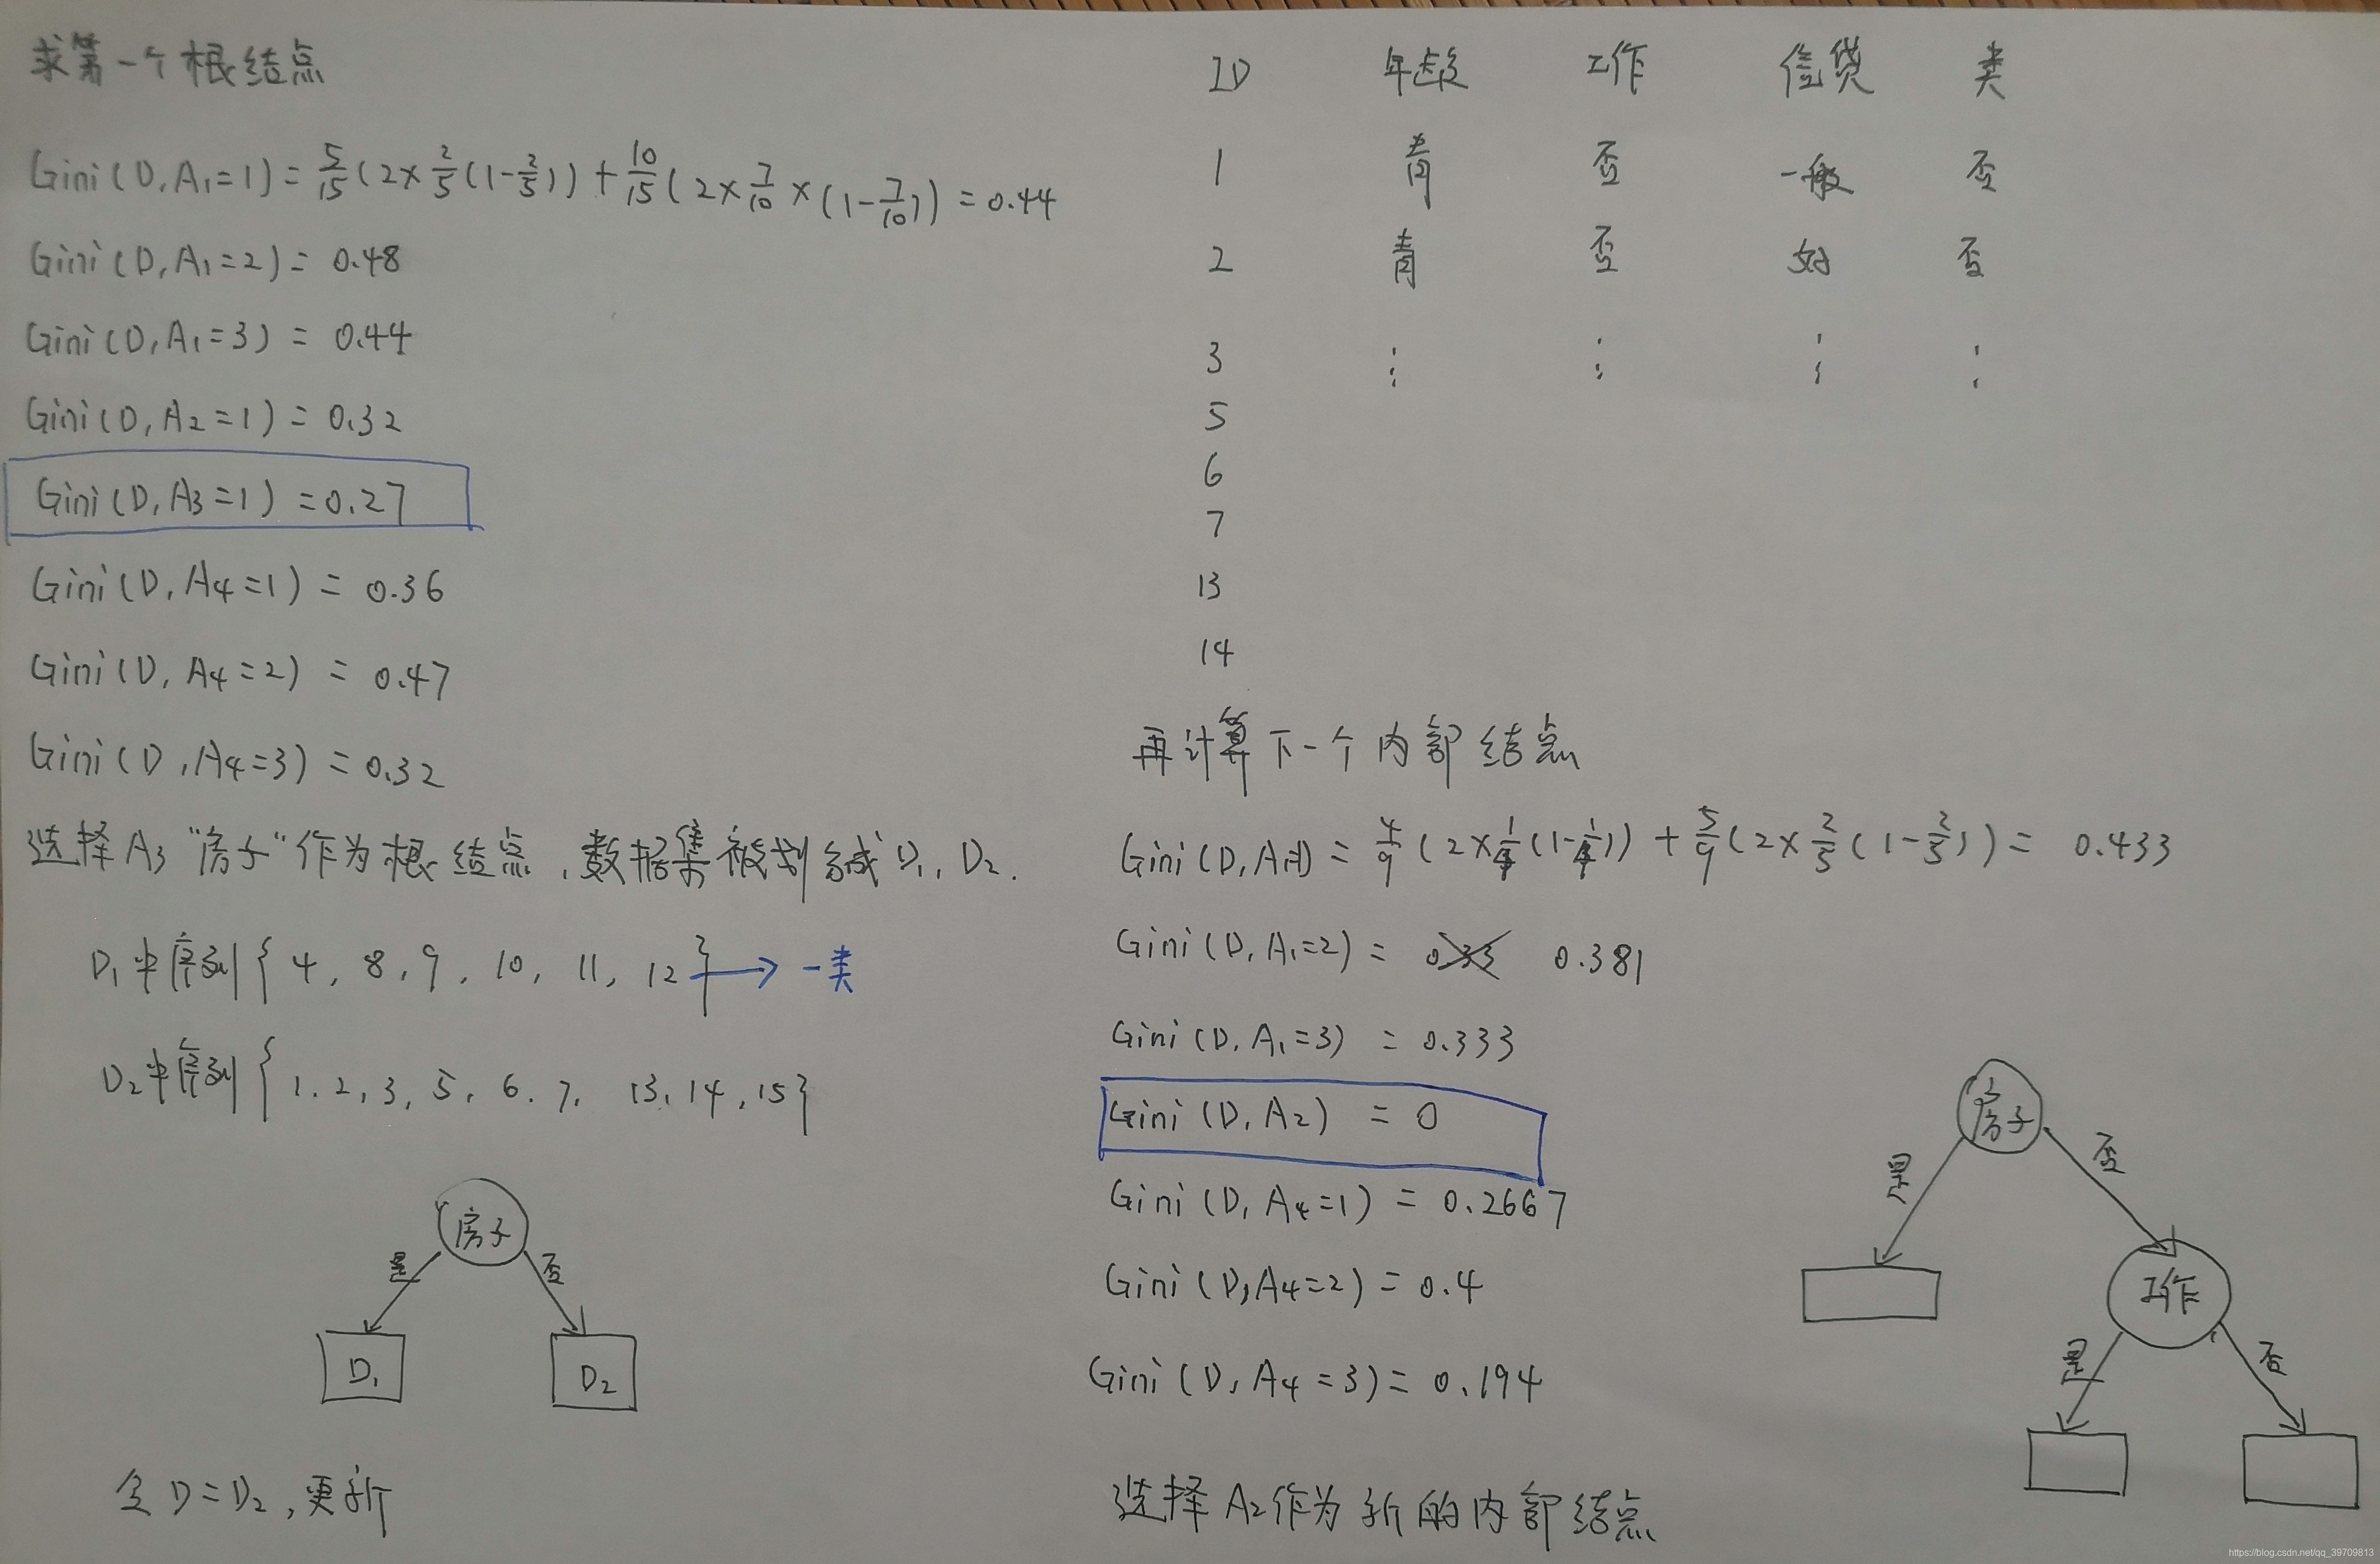 求第一个根结点
Gini(D,A₁=1)=5/15(2×2/5(1-2/5))+10/15(2×7/10×(1-7/10))=0.44
Gini(D,A₁=2)=0.48
Gini(D,A₁=3)=0.44
Gini(D,A₂=1)=0.32
Gini(D,A₃=1)=0.27
Gini(D,A₄=1)=0.36
Gini(D,A₄=2)=0.47
Gini(D,A₄=3)=0.32
选择A₃“房子”作为根结点,数据集被划分成D₁,D₂.
D₁中序列{4,8,9,10,11,12}→一类
D₂中序列{1.2,3,5,6.7,13,14,15}
房子
是 否
D₁ D₂
令D=D₂,更新
ID 年龄 工作 信贷 类
1 青 否 一般 否
2 青 否 好 否
3 ⋮ ⋮ ⋮ ⋮
5
6
7
13
14
再计算下一个内部结点
Gini(D,A₁=1)=4/9(2×1/4(1-1/4))+5/9(2×2/5(1-2/5))=0.433
Gini(D,A₁=2)=0.381
Gini(D,A₁=3)=0.333
Gini(D,A₂)=0
Gini(D,A₄=1)=0.2667
Gini(D,A₄=2)=0.4
Gini(D,A₄=3)=0.194
选择A₂作为新的内部结点
房子
是 否
工作
是 否
https://blog.csdn.net/qq_39709813